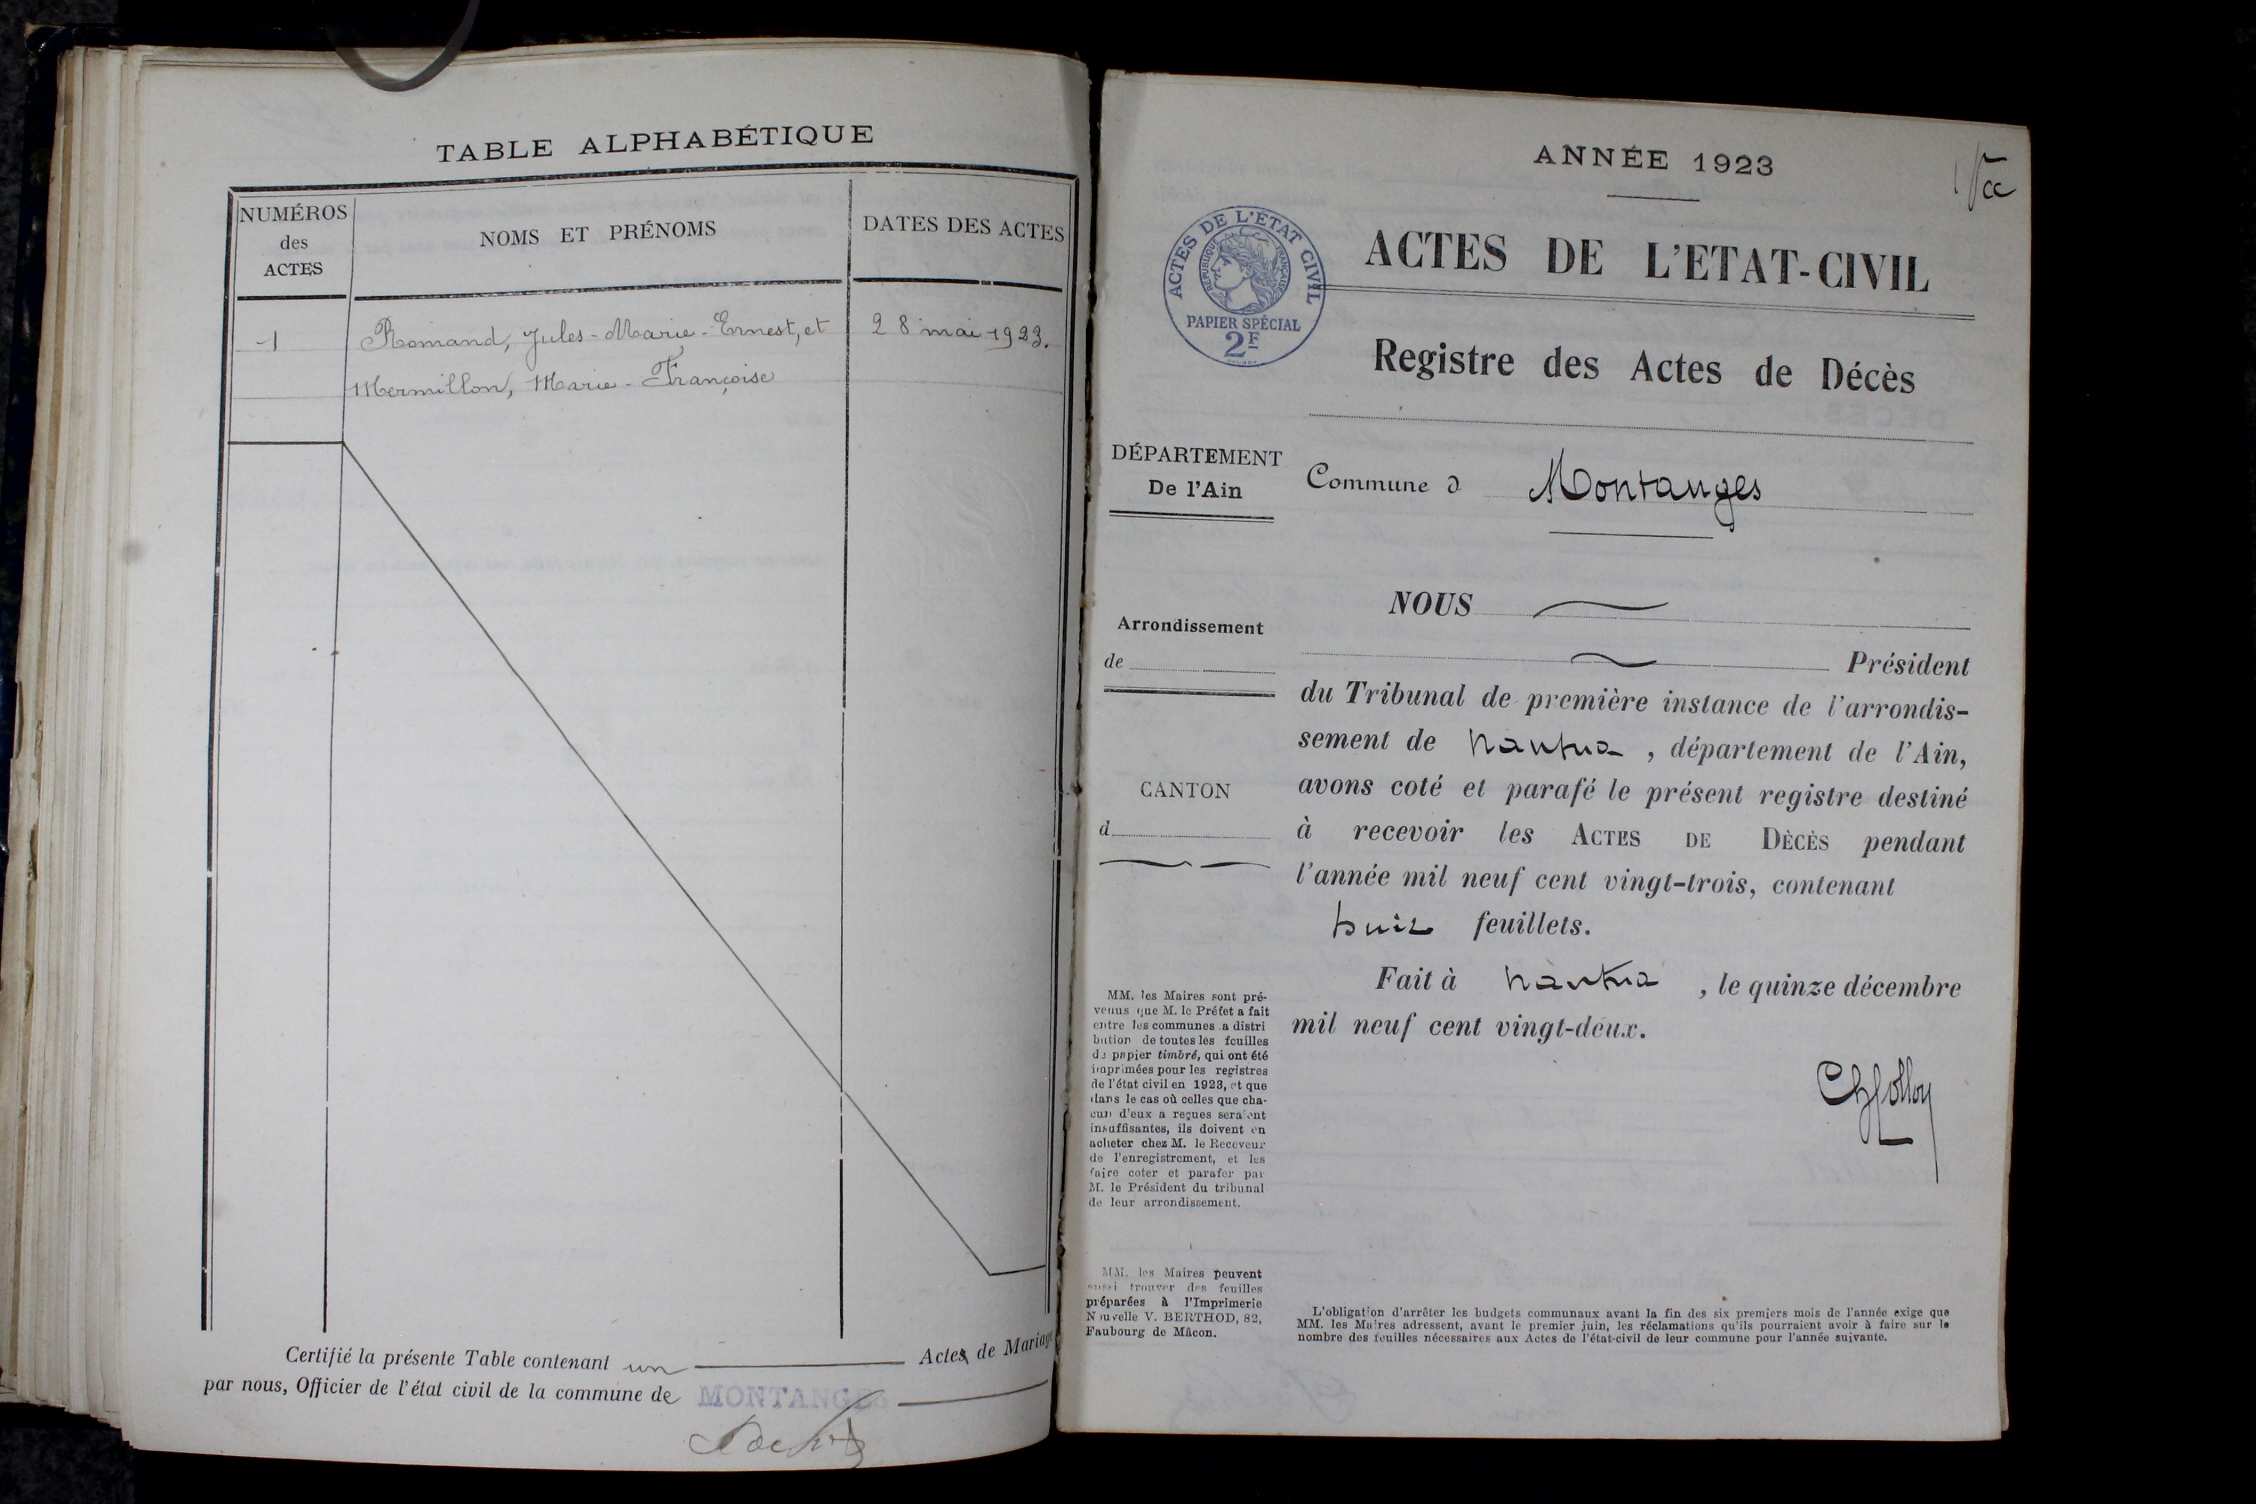 TABLE ALPHABÉTIQUE
NUMÉROS
des
ACTES
NOMS ET PRÉNOMS
DATES DES ACTES
1
Romand, Jules-Marie-Ernest, et
28 mai 1923.
Mermillon, Marie-Françoise
Certifié la présente Table contenant un Actes de Mariage
par nous, Officier de l'état civil de la commune de MONTANGES
ANNÉE 1923
ACTES DE L'ÉTAT CIVIL
RÉPUBLIQUE FRANÇAISE
PAPIER SPÉCIAL
2F
ACTES DE L'ETAT-CIVIL
Registre des Actes de Décès
DÉPARTEMENT
De l'Ain
Commune d Montanges
Arrondissement
de
CANTON
d
NOUS
Président
du Tribunal de première instance de l'arrondis-
sement de Nantua, département de l'Ain,
avons coté et parafé le présent registre destiné
à recevoir les ACTES DE DÈCÈS pendant
l'année mil neuf cent vingt-trois, contenant
huit feuillets.
Fait à Nantua, le quinze décembre
mil neuf cent vingt-deux.
MM. les Maires sont pré-
venus que M. le Préfet a fait
entre les communes a distri
bution de toutes les feuilles
de papier timbré, qui ont été
imprimées pour les registres
de l'état civil en 1923, et que
dans le cas où celles que cha-
cun d'eux a reçues seraient
insuffisantes, ils doivent en
acheter chez M. le Receveur
de l'enregistrement, et les
faire coter et parafer par
M. le Président du tribunal
de leur arrondissement.
MM. les Maires peuvent
aussi trouver des feuilles
préparées à l'Imprimerie
Nouvelle V. BERTHOD, 82,
Faubourg de Mâcon.
L'obligation d'arrêter les budgets communaux avant la fin des six premiers mois de l'année exige que
MM. les Maires adressent, avant le premier juin, les réclamations qu'ils pourraient avoir à faire sur le
nombre des feuilles nécessaires aux Actes de l'état-civil de leur commune pour l'année suivante.